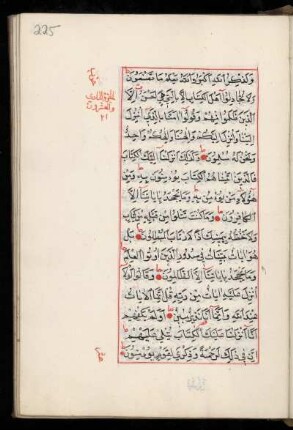 225
الجزو الحادي
والعشرون
٢١
وَلَذِكْرُ اللّٰهِ اَكْبَرُ وَاللّٰهُ يَعْلَمُ مَا تَصْنَعُونَ
وَلَا تُجَادِلُوا اَهْلَ الْكِتَابِ اِلَّا بِالَّتِي هِيَ اَحْسَنُ اِلَّا
الَّذِينَ ظَلَمُوا مِنْهُمْ وَقُولُوا اٰمَنَّا بِالَّذِي اُنْزِلَ
اِلَيْنَا وَاُنْزِلَ اِلَيْكُمْ وَاِلٰهُنَا وَاِلٰهُكُمْ وَاحِدٌ
وَنَحْنُ لَهُ مُسْلِمُونَ وَكَذٰلِكَ اَنْزَلْنَا اِلَيْكَ الْكِتَابَ
فَالَّذِينَ اٰتَيْنَاهُمُ الْكِتَابَ يُؤْمِنُونَ بِهِ وَمِنْ
هٰؤُلَاءِ مَنْ يُؤْمِنُ بِهِ وَمَا يَجْحَدُ بِاٰيَاتِنَا اِلَّا
الْكَافِرُونَ وَمَا كُنْتَ تَتْلُوا مِنْ قَبْلِهِ مِنْ كِتَابٍ
وَلَا تَخُطُّهُ بِيَمِينِكَ اِذًا لَارْتَابَ الْمُبْطِلُونَ بَلْ
هُوَ اٰيَاتٌ بَيِّنَاتٌ فِي صُدُورِ الَّذِينَ اُوتُوا الْعِلْمَ
وَمَا يَجْحَدُ بِاٰيَاتِنَا اِلَّا الظَّالِمُونَ وَقَالُوا لَوْلَا
اُنْزِلَ عَلَيْهِ اٰيَاتٌ مِنْ رَبِّهِ قُلْ اِنَّمَا الْاٰيَاتُ
عِنْدَ اللّٰهِ وَاِنَّمَا اَنَا نَذِيرٌ مُبِينٌ اَوَلَمْ يَكْفِهِمْ
اَنَّا اَنْزَلْنَا عَلَيْكَ الْكِتَابَ يُتْلٰى عَلَيْهِمْ
اِنَّ فِي ذٰلِكَ لَرَحْمَةً وَذِكْرٰى لِقَوْمٍ يُؤْمِنُونَ